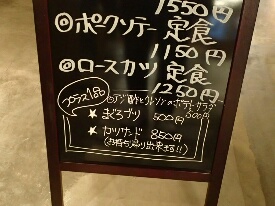 1550円
◎ポークソテー定食
1150円
◎ロースカツ定食
1250円
プラス1品
500円
★まぐろブツ 500円
★カツサンド 850円
(お持ち帰り出来ます!!)